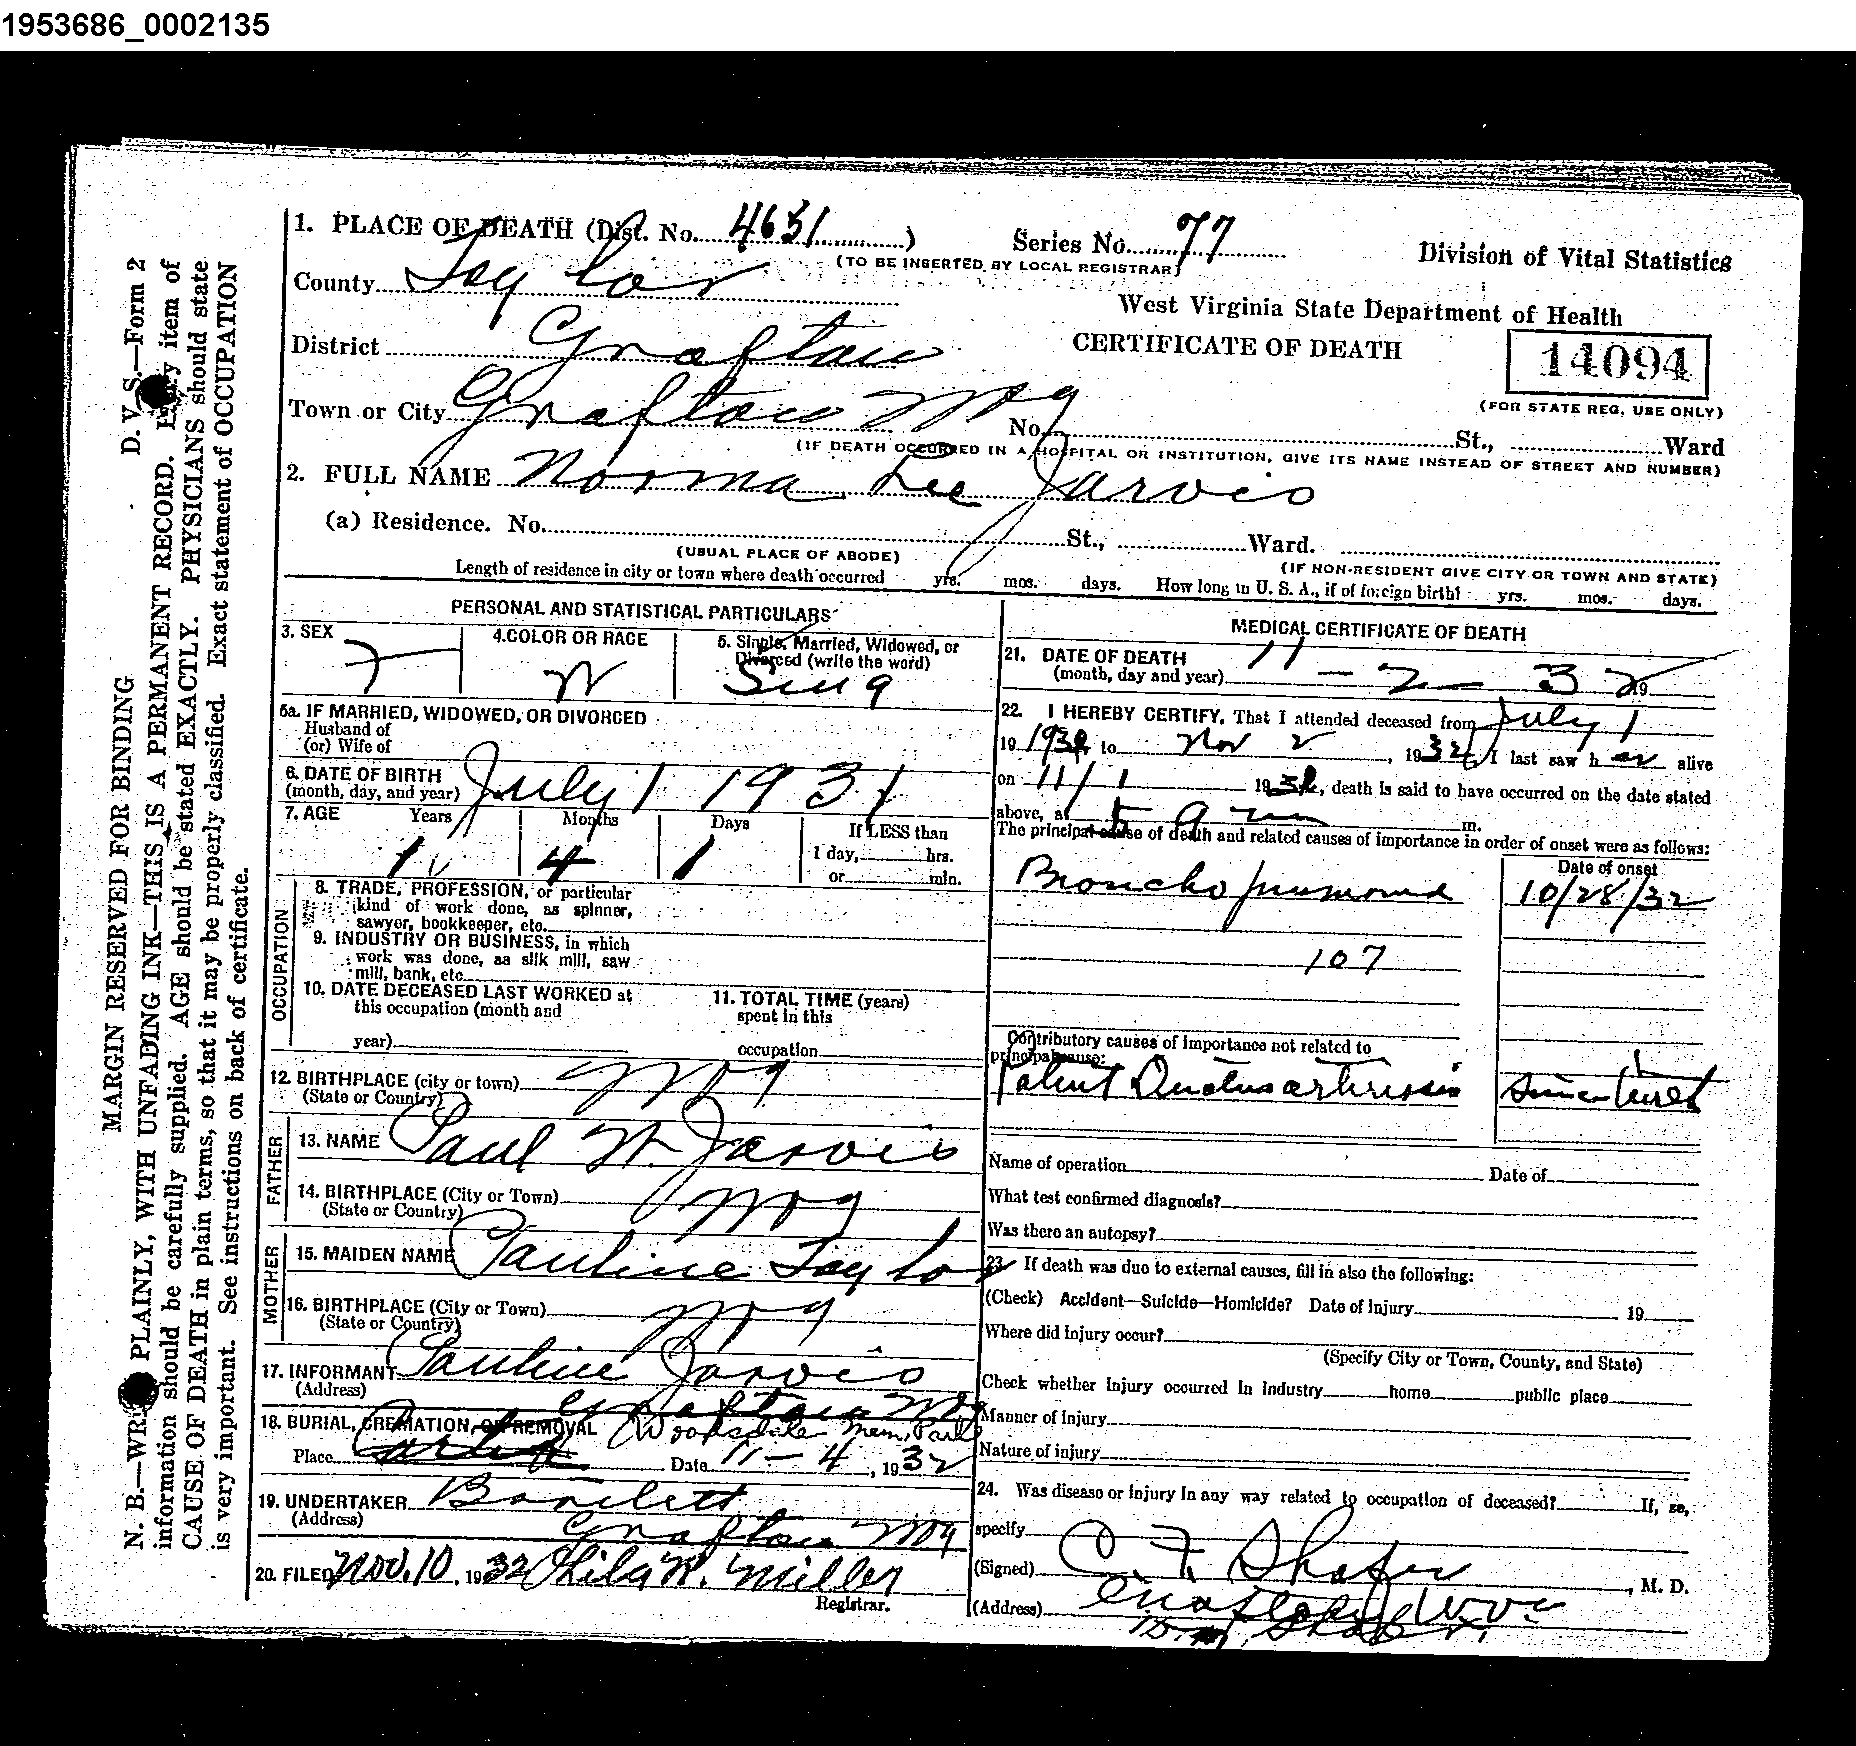 1953686_0002135
1. PLACE OF DEATH (Dist. No. 4631 ) Series No. 77
(TO BE INSERTED BY LOCAL REGISTRAR)
Division of Vital Statistics
County Taylor
West Virginia State Department of Health
CERTIFICATE OF DEATH
14094
(FOR STATE REG. USE ONLY)
District Grafton
Town or City Grafton No. St., Ward
(IF DEATH OCCURRED IN A HOSPITAL OR INSTITUTION, GIVE ITS NAME INSTEAD OF STREET AND NUMBER)
2. FULL NAME Norma Lee Jarvis
(a) Residence. No. St., Ward.
(USUAL PLACE OF ABODE) (IF NON-RESIDENT GIVE CITY OR TOWN AND STATE)
Length of residence in city or town where death occurred yrs. mos. days. How long in U. S. A., if of foreign birth? yrs. mos. days.
PERSONAL AND STATISTICAL PARTICULARS
3. SEX F
4. COLOR OR RACE W
5. Single, Married, Widowed, or
Divorced (write the word)
Sing
5a. IF MARRIED, WIDOWED, OR DIVORCED
Husband of
(or) Wife of
6. DATE OF BIRTH
(month, day, and year) July 1 1931
7. AGE Years Months Days If LESS than
1 4 1 1 day, hrs.
or min.
OCCUPATION
8. TRADE, PROFESSION, or particular
kind of work done, as spinner,
sawyer, bookkeeper, etc.
9. INDUSTRY OR BUSINESS, in which
work was done, as silk mill, saw
mill, bank, etc.
10. DATE DECEASED LAST WORKED at
this occupation (month and
year)
11. TOTAL TIME (years)
spent in this
occupation
12. BIRTHPLACE (city or town)
(State or Country)
FATHER
13. NAME Paul W. Jarvis
14. BIRTHPLACE (City or Town)
(State or Country)
MOTHER
15. MAIDEN NAME Pauline Taylor
16. BIRTHPLACE (City or Town)
(State or Country)
17. INFORMANT Pauline Jarvis
(Address) Grafton
18. BURIAL, CREMATION, OR REMOVAL Woodsdale Mem. Park
Place Date 11-4, 1932
19. UNDERTAKER Bartlett
(Address) Grafton
20. FILED Nov. 10, 1932 Miller
Registrar.
MEDICAL CERTIFICATE OF DEATH
21. DATE OF DEATH
(month, day and year) 11-2-32 19
22. I HEREBY CERTIFY, That I attended deceased from July 1
19 to Nov 2, 1932, I last saw her alive
on 11/1 1932, death is said to have occurred on the date stated
above, at am m.
The principal cause of death and related causes of importance in order of onset were as follows:
Date of onset
Broncho pneumonia 10/28/32
107
Contributory causes of importance not related to
principal cause:
Patent Ductus arteriosis since birth
Name of operation Date of
What test confirmed diagnosis?
Was there an autopsy?
23. If death was due to external causes, fill in also the following:
(Check) Accident—Suicide—Homicide? Date of injury 19
Where did injury occur?
(Specify City or Town, County, and State)
Check whether injury occurred in industry home public place
Manner of injury
Nature of injury
24. Was disease or injury in any way related to occupation of deceased? If, so,
specify
(Signed) C F Shafer, M. D.
(Address) Grafton W. Va.
MARGIN RESERVED FOR BINDING D. V. S.—Form 2
N. B.—WRITE PLAINLY, WITH UNFADING INK—THIS IS A PERMANENT RECORD. Every item of
information should be carefully supplied. AGE should be stated EXACTLY. PHYSICIANS should state
CAUSE OF DEATH in plain terms, so that it may be properly classified. Exact statement of OCCUPATION
is very important. See instructions on back of certificate.